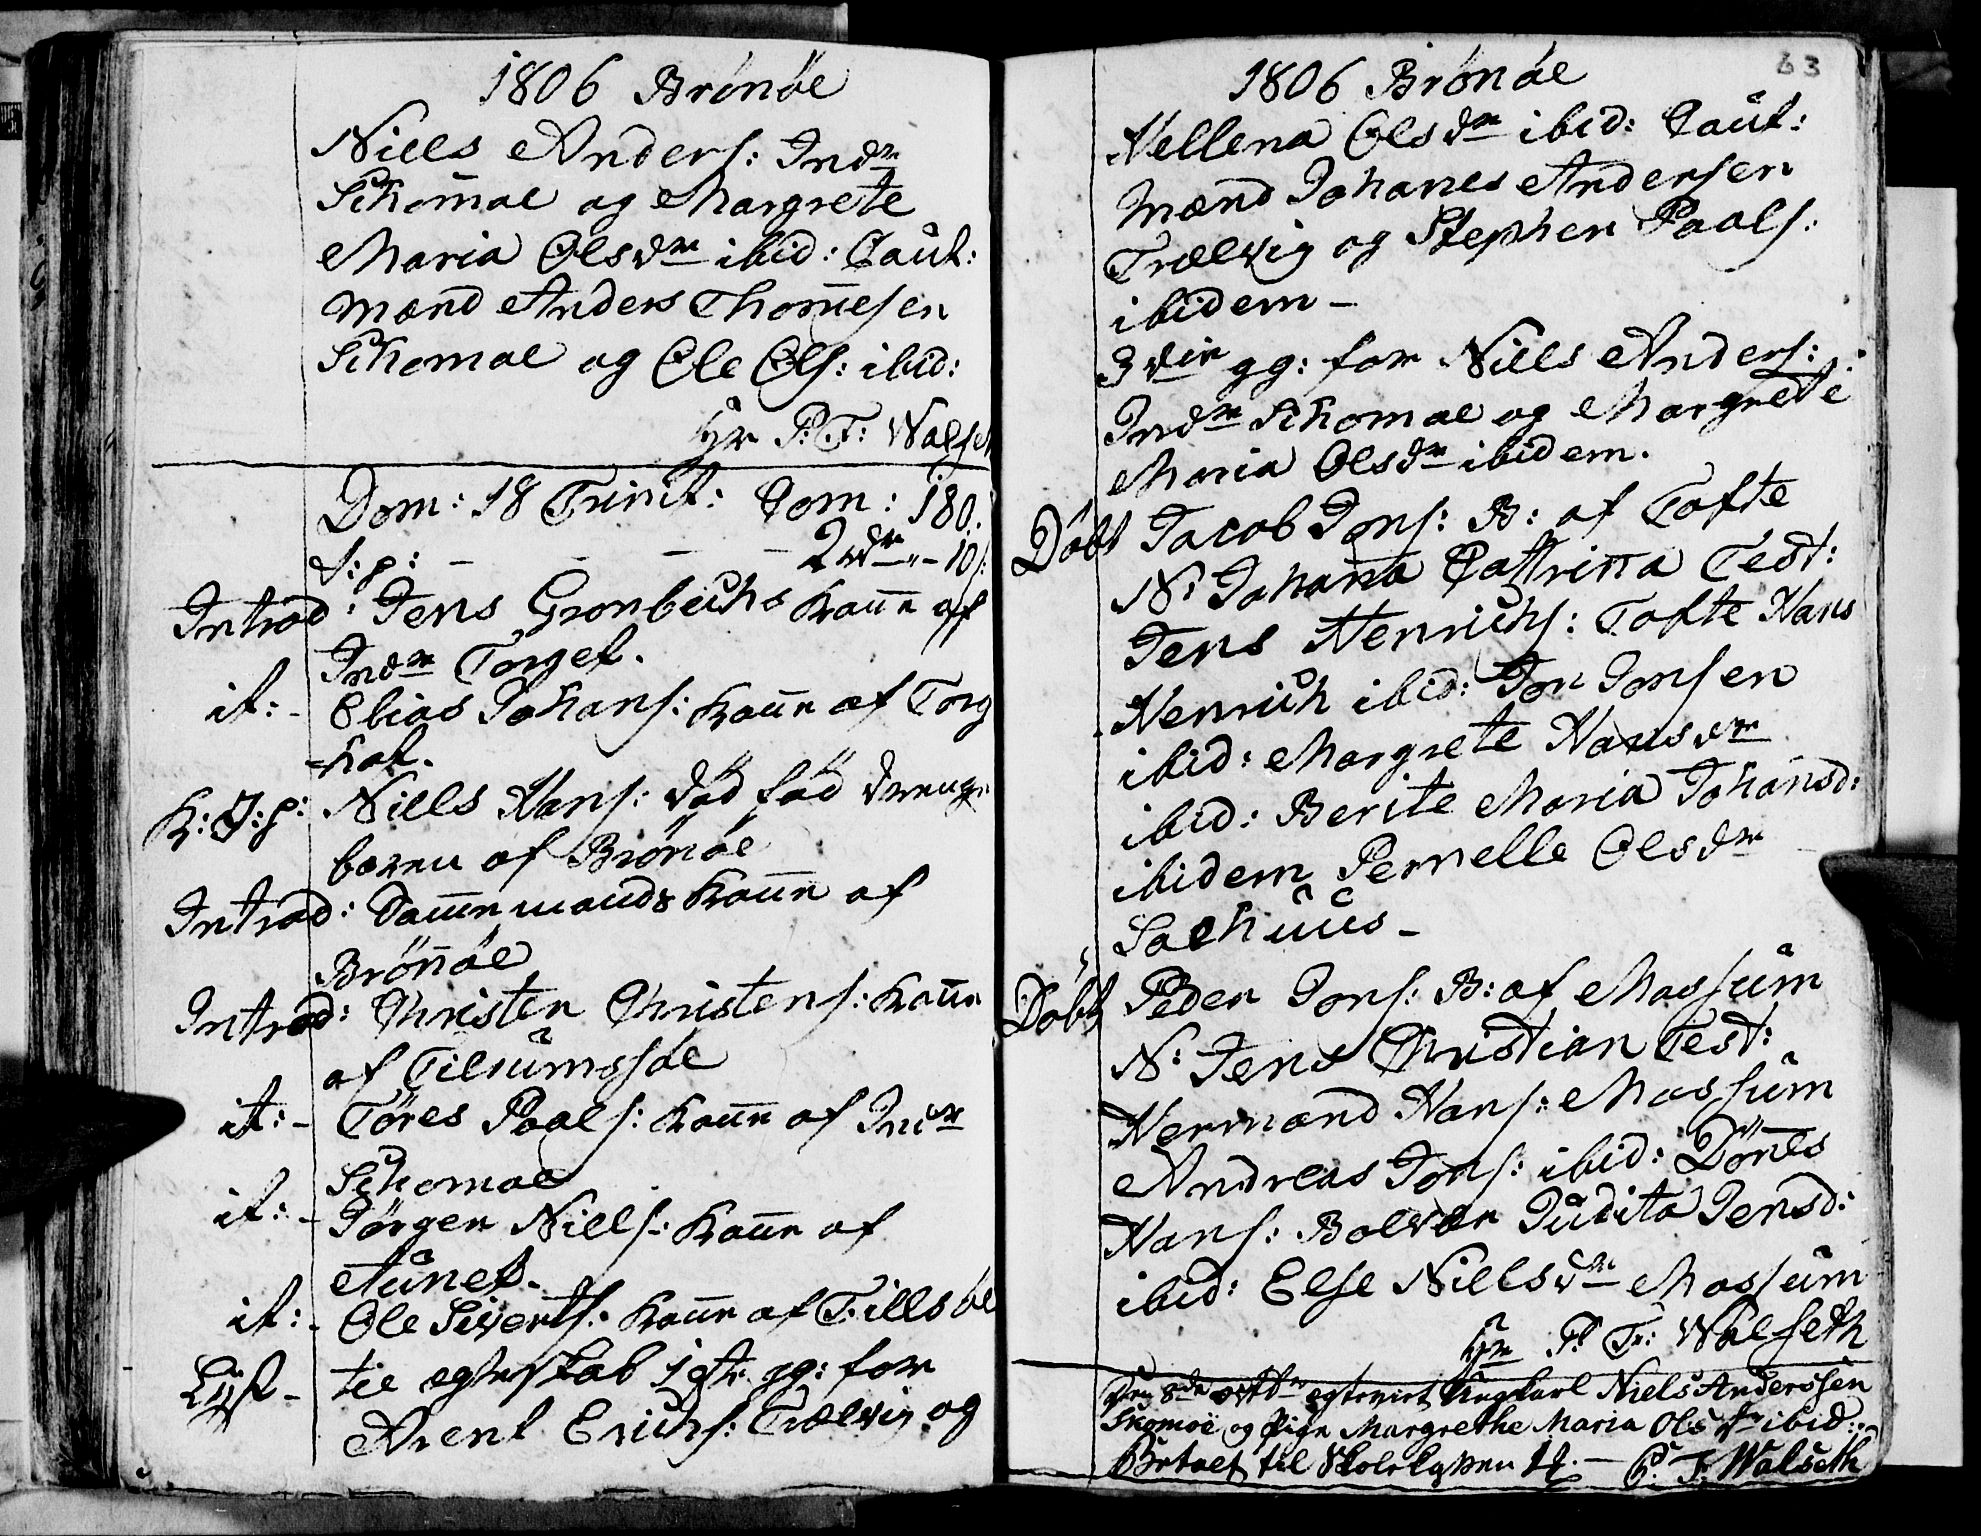 1806 Brönöe
Niels Anders: Indr
Schomoe og Margrete
Maria Olsdr ibid: Caut:
mænd Anders Thomesen
Schomoe og Ole Ols: ibid:
Hr P: T: Walset
Dom: 18 Trinit: Com: 180.
S: p: - - - 2 dr „ - 10 s:
Introd: Jens Gronbechs Kone af
Indr Torget.
it: - Elias Johans: Kone af Torg
=hat.
K: J: p: Niells Hans: död föd drenge
baren af Brönöe
Introd: Dannemands Kone af
Brönöe
Introd: Christen Christens: Kone
af Tilrumssöe
it: - Töres Paals: Kone af Indr
Schomoe
it: - Jörgen Niells: Kone af
Aunet.
it: - Ole Siverts: Kone af
Lyst - til egteskab 1ste gg: for
Arent Erichs: Trælvig og
63
1806 Brönöe
Hellena Olsdr ibid: Caut:
mænd Johanes Andersen
Trælvig og Stephen Paals:
ibidem -
3die gg: for Niells Anders:
Indr Schomoe og Margrete
Maria Olsdr ibidem.
Döbt Jacob Jons: B: af Tofte
N: Johana Cattrina Test:
Jens Henrichs: Tofte Hans
Henrich ibid: Jon Jonsen
ibid: Margrete Hansdr
ibid: Berite Maria Johansd:
ibidem Pernelle Olsdr
Salhuus -
Döbt Peder Jons: B: af Mossum
N: Jens Christian Test:
Hermand Hans: Mossum
Andreas Jons: ibid: Dönes
Hans: Bolvær Judita Jensd:
ibid: Else Nielsdr Mossum
Hr P: T: Walseth
Den 8de egteviet Ungkarl Niels Anderssen
Skomöe og Pige Margrethe Maria Olsdr ibid:
Betalt til Skole - P. T. Walseth